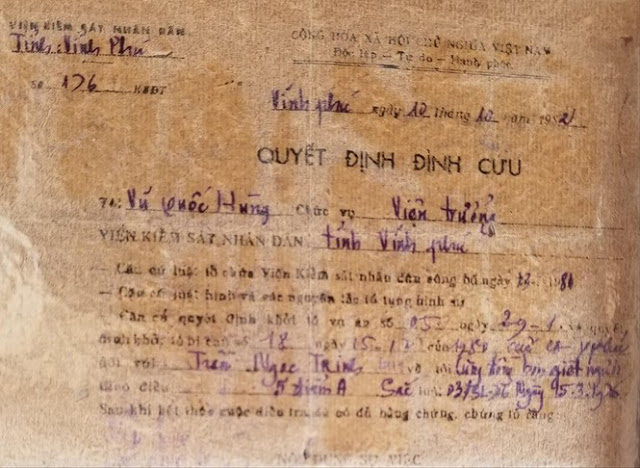 VIỆN KIỂM SÁT NHÂN DÂN
Tỉnh Vĩnh Phú
CỘNG HÒA XÃ HỘI CHỦ NGHĨA VIỆT NAM
Độc lập — Tự do — Hạnh phúc
Số 176 KSĐT
Vĩnh phú ngày 10 tháng 10 năm 198
QUYẾT ĐỊNH ĐÌNH CỨU
Vũ Quốc Hùng Chức vụ Viện trưởng
VIỆN KIỂM SÁT NHÂN DÂN tỉnh Vĩnh phú
— Căn cứ luật tổ chức Viện Kiểm sát nhân dân công bố ngày
— Căn cứ luật hình và các nguyên tắc tố tụng hình sự
— Căn cứ quyết định khởi tố vụ án số 05 ngày 29-1 và quyết
định khởi tố bị can số 18 ngày 15-12 của
đối với Trần Ngọc Trinh về tội giết người
theo điều 5 điểm A Sắc luật 03/SL-76 Ngày 15.3.1976
Sau khi kết thúc cuộc điều tra đã có đủ bằng chứng, chứng tỏ rằng
NỘI DUNG SỰ VIỆC